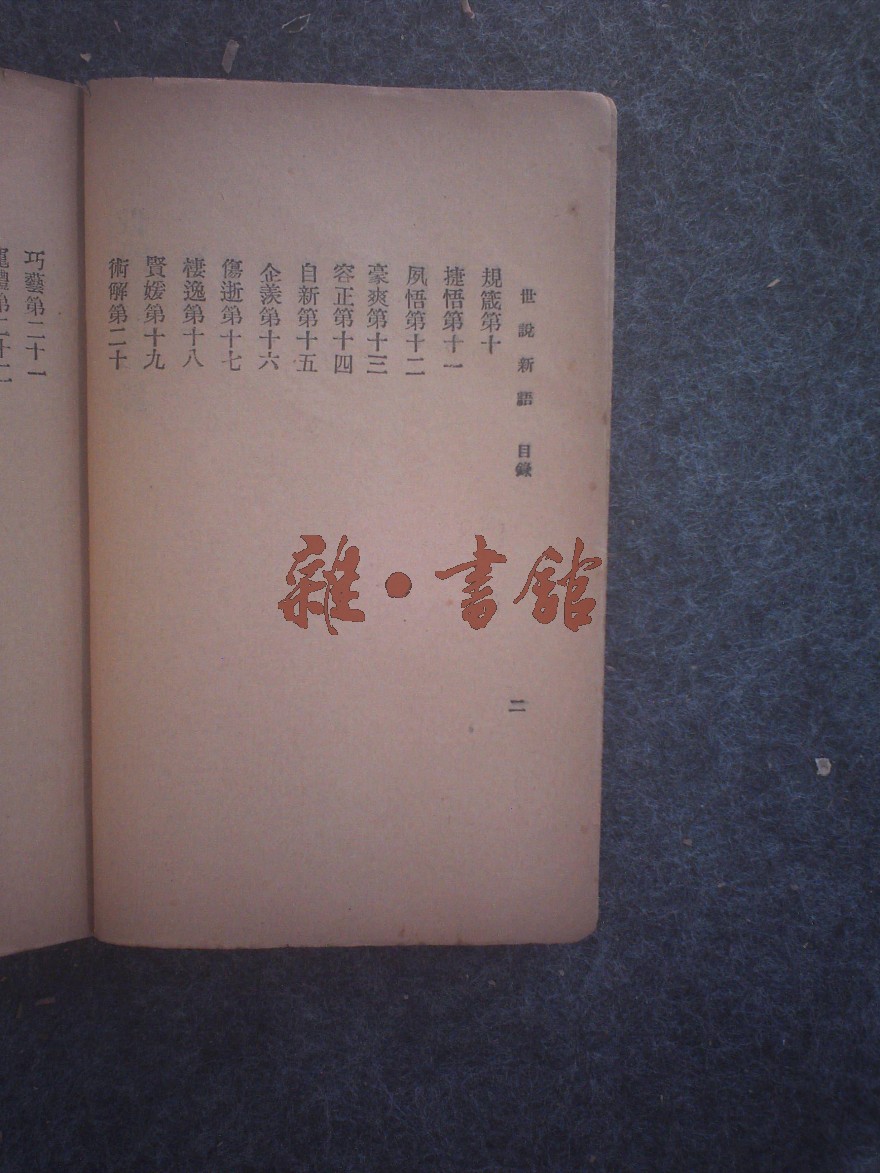 世說新語 目錄
二
規箴第十
捷悟第十一
夙悟第十二
豪爽第十三
容正第十四
自新第十五
企羨第十六
傷逝第十七
棲逸第十八
賢媛第十九
術解第二十
巧藝第二十一
雜·書館